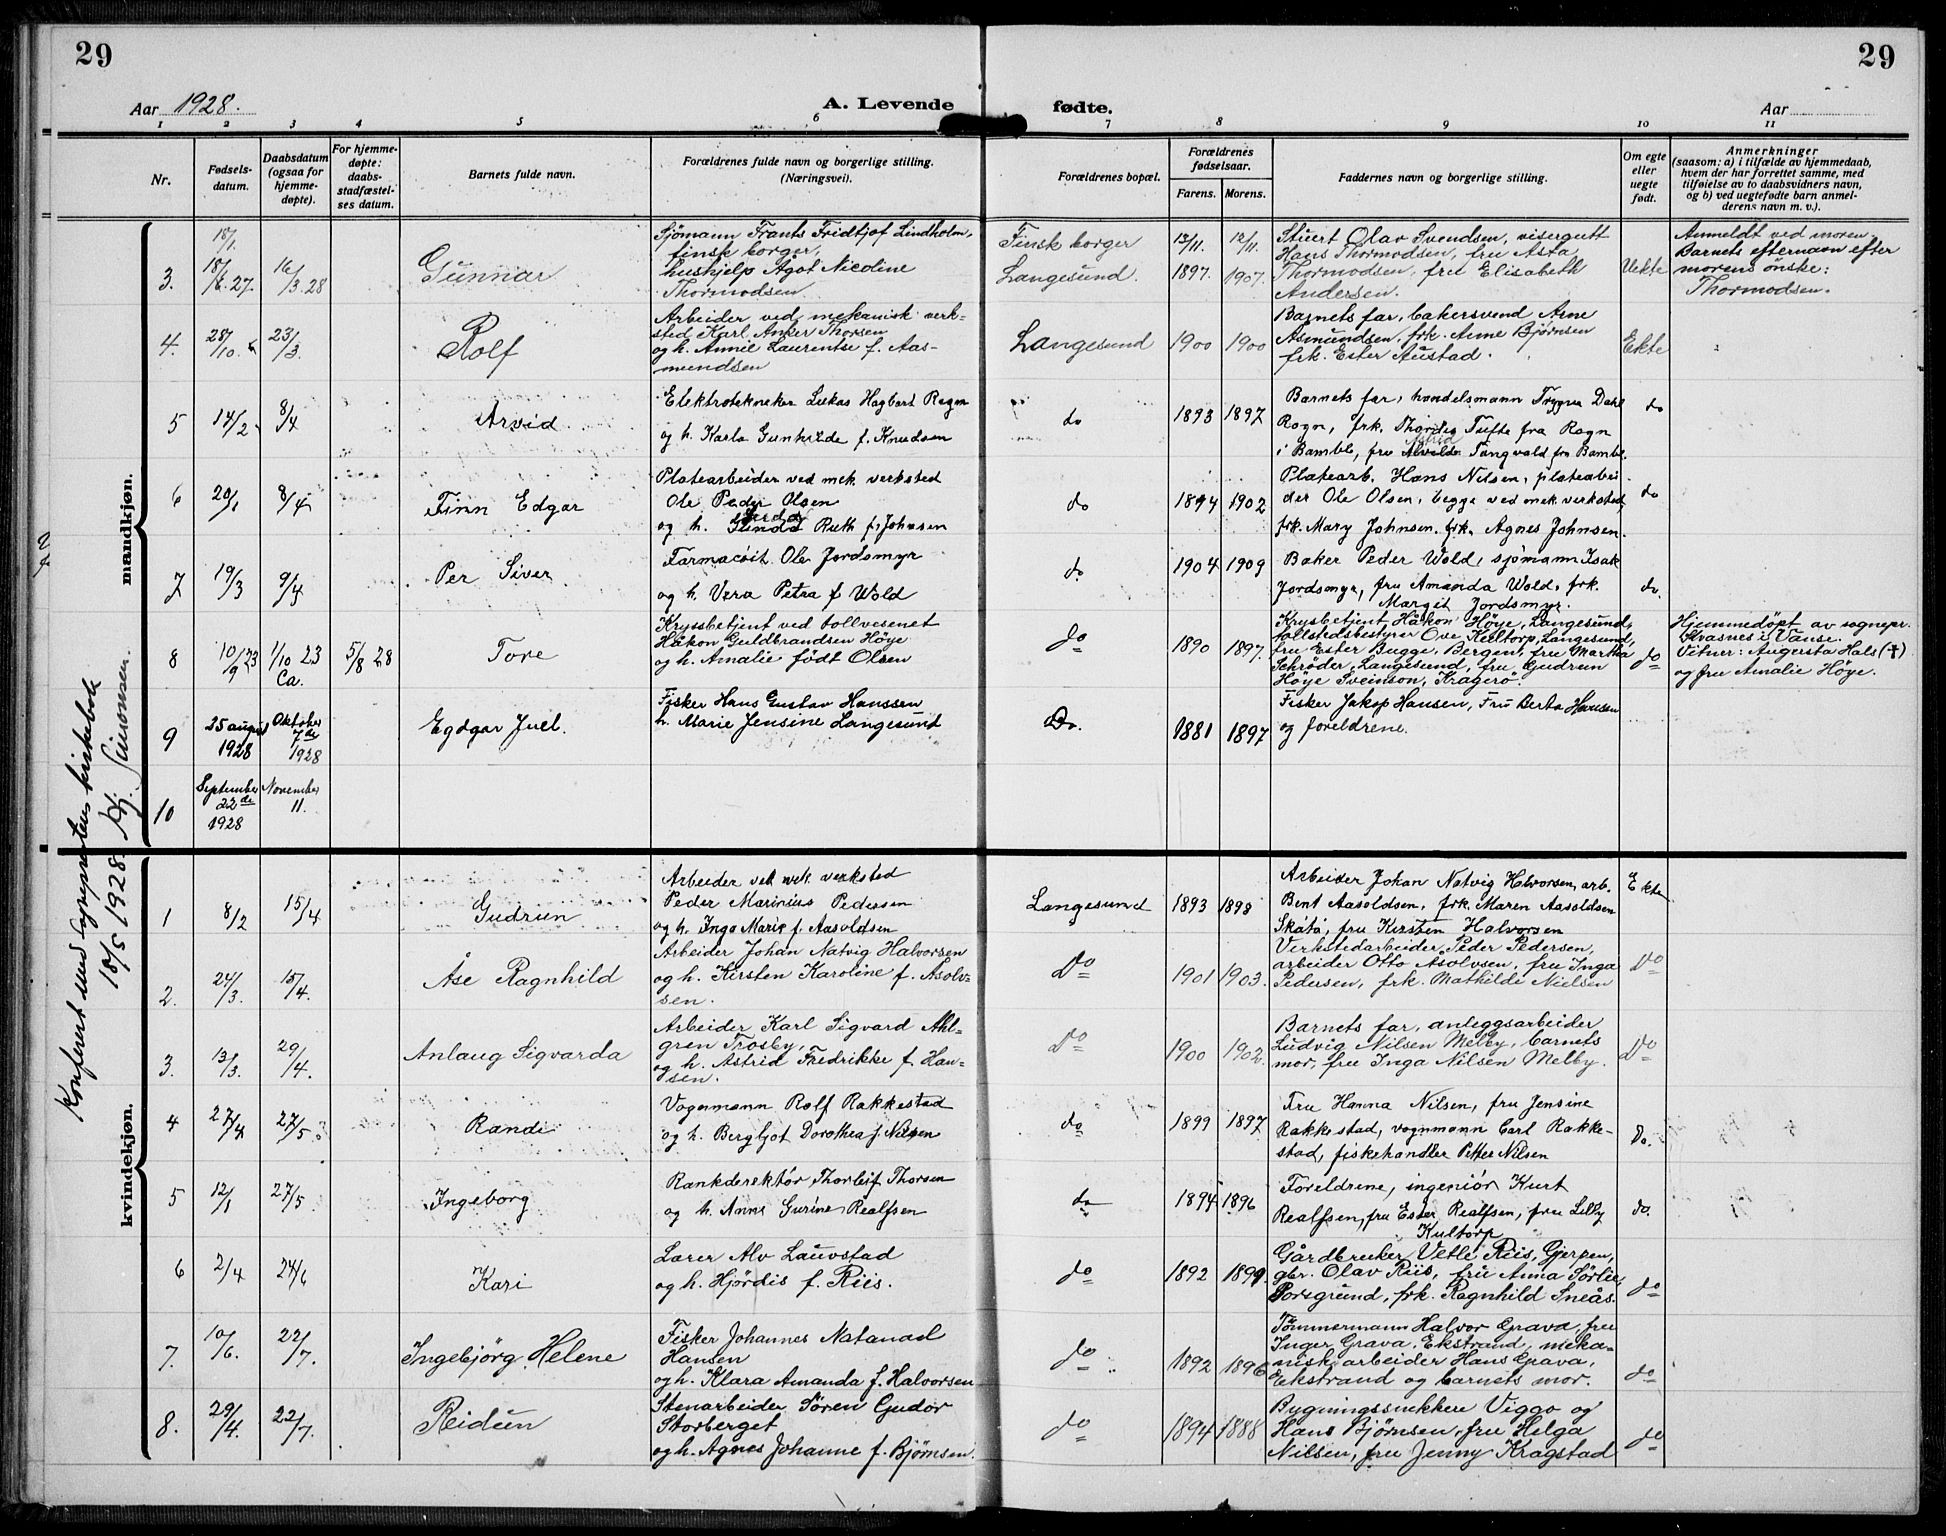 29
29
Aar 1928.
A. Levende fødte.
Aar
1 2 3 4 5 6 7 8 9 10 11
Nr.
Fødsels-
datum.
Daabsdatum
(ogsaa for
hjemme-
døpte).
For hjemme-
døpte:
daabs-
stadfæstel-
ses datum.
Barnets fulde navn.
Forældrenes fulde navn og borgerlige stilling.
(Næringsvei).
Forældrenes bopæl.
Forældrenes
fødselsaar.
Farens. Morens.
Faddernes navn og borgerlige stilling.
Om egte
eller
uegte
født.
Anmerkninger
(saasom: a) i tilfælde av hjemmedaab,
hvem der har forrettet samme, med
tilføielse av to daabsvidners navn,
og b) ved uegtefødte barn anmel-
derens navn m. v.).
mandkjøn.
3. 18/1. 18/6.27. 16/3.28 Gunnar
Sjømann Frants Fridtjof Lindholm,
finsk borger,
hushjelp Agot Nicoline
Thormodsen.
Finsk borger
Langesund.
13/11. 1897. 12/11. 1907.
Stuert Olav Svendsen, visergutt
Hans Thormodsen, fru Asta
Thormodsen, fru Elisabeth
Andersen.
Uekte
Anmeldt ved moren.
Barnets efternavn efter
morens ønske:
Thormodsen.
4. 28/10. 23/3. Rolf
Arbeider ved mekanisk verk-
sted Karl Anker Thorsen
og h. Annie Laurentse f. Aas-
mundsen
Langesund 1900 1900
Barnets far, bakersvend Arne
Asmundsen, frk. Arne Bjørnsen
frk. Ester Austad.
Ekte
5 14/2 8/4 Arvid
Elektrotekneker Lukas Hagbart Rogn
og h. Karla Gunhilde f. Knudsen
do 1893 1897
Barnets far, handelsmann Trygve Dahl
Rogn, frk. Thordis Tufte fra Rogn
i Bamble, fru Tangvald fra Bamble.
do
6 20/1 8/4 Finn Edgar
Platearbeider ved mek verksted
Ole Peder Olsen
og h. Gerda Ruth f. Johnsen
do 1894 1902
Platearb. Hans Nilsen, platearbei
der Ole Olsen, begge ved mek verksted,
frk. Mary Johnsen. frk. Agnes Johnsen.
do
7 19/3 9/4 Per Siver
Farmacøit Ole Jordsmyr
og h. Vera Petra f Wold
do 1904 1909
Baker Peder Wold, sjømann Isak
Jordsmyr, fru Amanda Wold, frk.
Margit Jordsmyr.
do.
8 10/9 23 1/10 23 Ca. 5/8 28 Tore
Kryssbetjent ved tollvesenet
Håkon Guldbrandsen Høye
og h. Amalie født Olsen
do 1890 1897.
Kryssbetjent Håkon Høye, Langesund,
tollstedsbestyrer Ove Kultorp, Langesund,
fru Ester Bugge, Bergen, fru Martha
Schrøder, Langesund, fru Gudrun
Høye Sveinson, Kragerø.
do
Hjemmedöpt av sognepr.
Kvasnes i Vanse.
Vitner: Augusta Hals (†)
og fru Amalie Höye.
9 25 august 1928 Oktober 7de 1928 Egdgar Juel.
Fisker Hans Gustav Hanssen
h. Marie Jensine Langesund
Do. 1881 1897
Fisker Jakop Hansen, Fru Berta Hansen
og foreldrene.
10 September 22de 1928 November 11.
Konferert med sogneprestens kirkebok
18/5 1928. Simonsen.
kvindekjøn.
1 8/2 15/4 Gudrun
Arbeider ved mek. verksted
Peder Marinius Pedersen
og h. Inga Marie f. Aasoldsen
Langesund 1893 1898
Arbeider Johan Natvig Halvorsen, arb.
Bent Aasoldsen, frk. Maren Aasoldsen
Skåtø, fru Kirsten Halvorsen
Ekte
2. 24/3. 15/4. Åse Ragnhild
Arbeider Johan Natvig Halvorsen
og h. Kirsten Karoline f. Asolv-
sen.
Do 1901 1903.
Verkstedarbeider Peder Pedersen,
arbeider Otto Asolvsen, fru Inga
Pedersen, frk. Mathilde Nielsen
Do
3. 13/3. 29/4. Anlaug Sigvarda
Arbeider Karl Sigvard Ahl-
gren Trosby,
og h. Astrid Fredrikke f. Han-
sen.
Do 1900 1902.
Barnets far, anleggsarbeider
Ludvig Nilsen Melby, barnets
mor, fru Inga Nilsen Melby.
Do
4 27/4 27/5 Randi
Vognmann Rolf Rakkestad
og h. Bergljot Dorothea f. Nilsen
do 1899 1897
Fru Hanna Nilsen, fru Jensine
Rakkestad, vognmann Carl Rakke-
stad, fiskehandler Petter Nilsen
do.
5 12/1 27/5. Ingeborg
Bankderektør Thorleif Thorsen
og h. Anna Gurine Realfsen
do 1894 1896
Foreldrene, ingeniør Kurt
Realfsen, fru Ester Realfsen, fru Lilly
Kultorp
do.
6 2/4 24/6 Kari
Lærer Alv Lauvstad
og h. Hjørdis f. Riis.
do 1892 1899.
Gårdbruker Vetle Riis, Gjerpen,
gbr. Olav Riis, fru Anna Sørlie,
Porsgrund, frk. Ragnhild Sneås.
do
7. 10/6. 22/7. Ingebjörg Helene
Fisker Johannes Natanael
Hansen
og h. Klara Amanda f. Halvorsen
do 1892 1896
Tömmermann Halvor Grava, fru
Inger Grava, Ekstrand, meka-
nisk arbeider Hans Grava,
Ekstrand og barnets mor.
do
8. 29/4. 22/7. Reidun
Stenarbeider Sören Gudor
Storberget
og h. Agnes Johanne f. Bjørnsen.
do 1894 1888
Bygningssnekkere Viggo og
Hans Bjørnsen, fru Helga
Nilsen, fru Jenny Kragstad
do